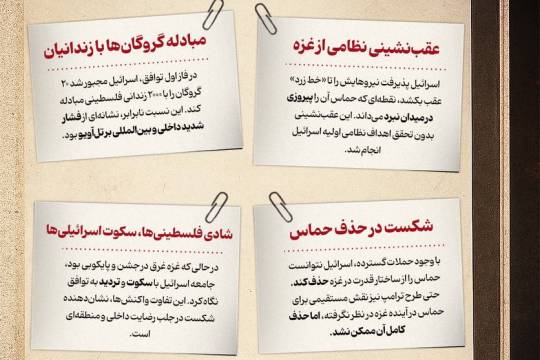 عقب‌نشینی نظامی از غزه
اسرائیل پذیرفت نیروهایش را تا «خط زرد»
عقب بکشد، نقطه‌ای که حماس آن را پیروزی
در میدان نبرد می‌داند. این عقب‌نشینی
بدون تحقق اهداف نظامی اولیه اسرائیل
انجام شد.
مبادله گروگان‌ها با زندانیان
در فاز اول توافق، اسرائیل مجبور شد ۲۰
گروگان را با ۲۰۰۰ زندانی فلسطینی مبادله
کند. این نسبت نابرابر، نشانه‌ای از فشار
شدید داخلی و بین‌المللی بر تل‌آویو بود.
شکست در حذف حماس
با وجود حملات گسترده، اسرائیل نتوانست
حماس را از ساختار قدرت در غزه حذف کند.
حتی طرح ترامپ نیز نقش مستقیمی برای
حماس در آینده غزه در نظر نگرفته، اما حذف
کامل آن ممکن نشد.
شادی فلسطینی‌ها، سکوت اسرائیلی‌ها
در حالی که غزه غرق در جشن و پایکوبی بود،
جامعه اسرائیل با سکوت و تردید به توافق
نگاه کرد. این تفاوت واکنش‌ها، نشان‌دهنده
شکست در جلب رضایت داخلی و منطقه‌ای
است.